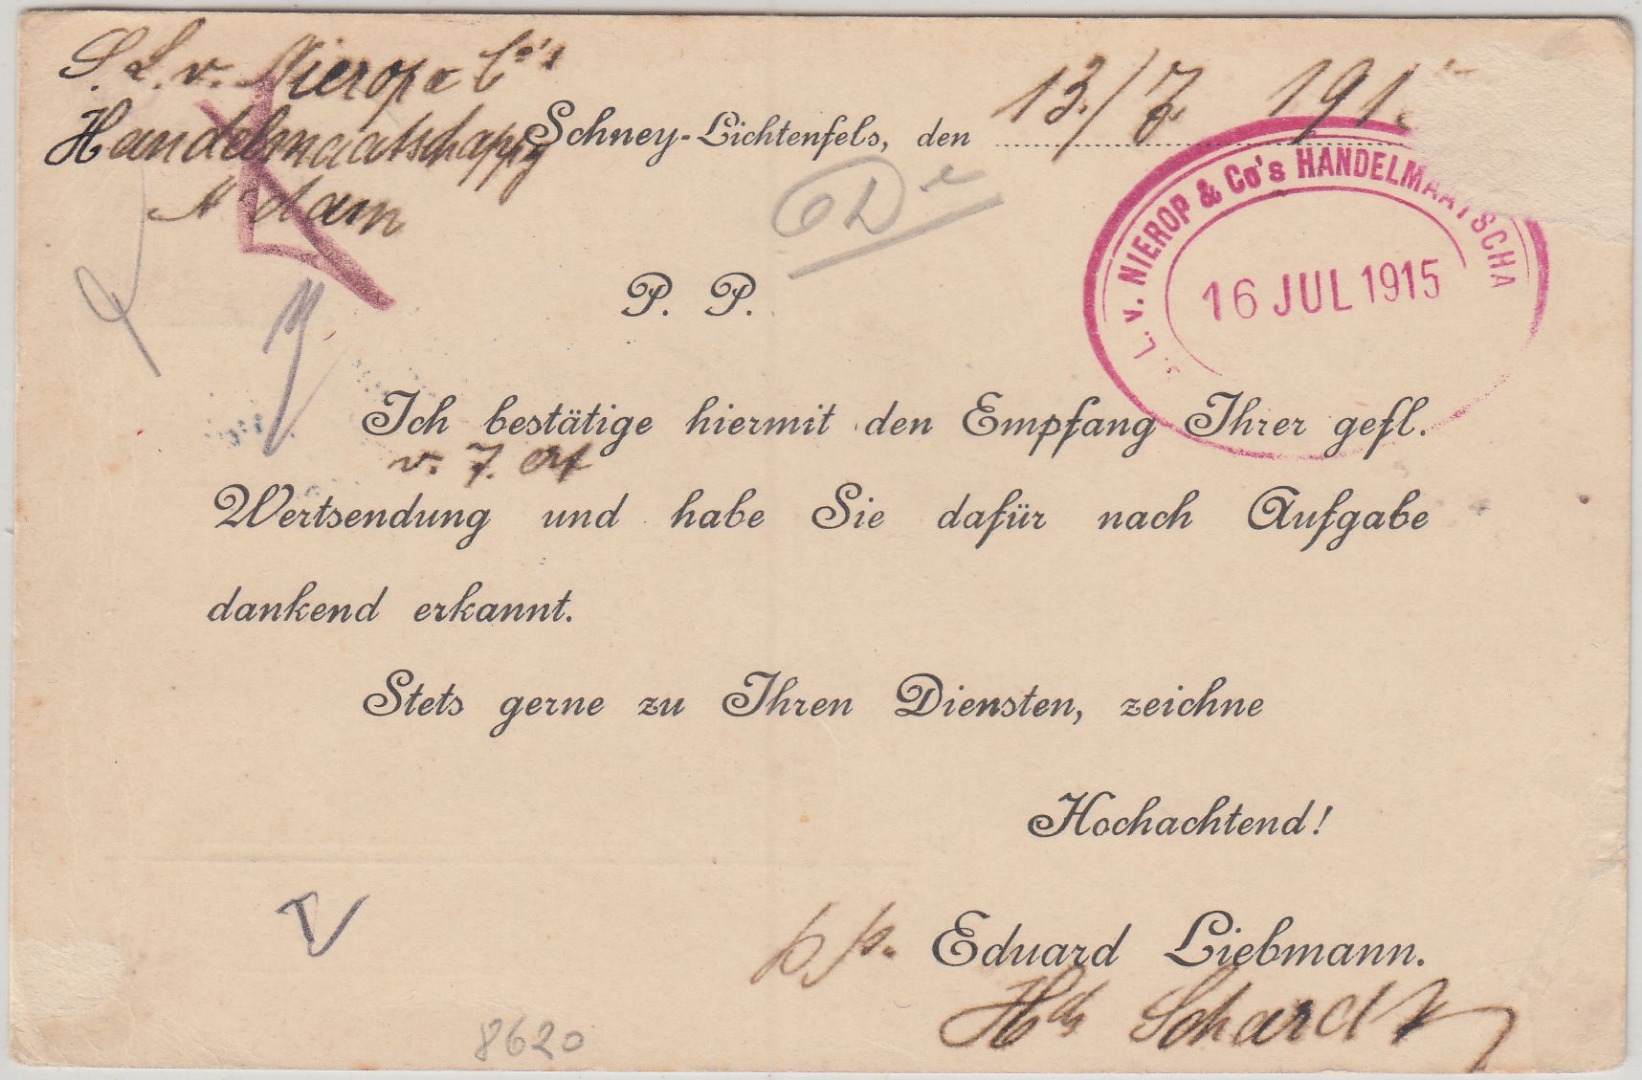 S. L. v. Nierop & Co's
Handelmaatschappij
A'dam
Schney-Lichtenfels, den 13./7. 191
L. v. NIEROP & Co's HANDELMAATSCHA
16 JUL 1915
P. P.
Ich bestätige hiermit den Empfang Ihrer gefl.
v. 7. crt
Wertsendung und habe Sie dafür nach Aufgabe
dankend erkannt.
Stets gerne zu Ihren Diensten, zeichne
Hochachtend!
p.p. Eduard Liebmann.
Schardt
8620